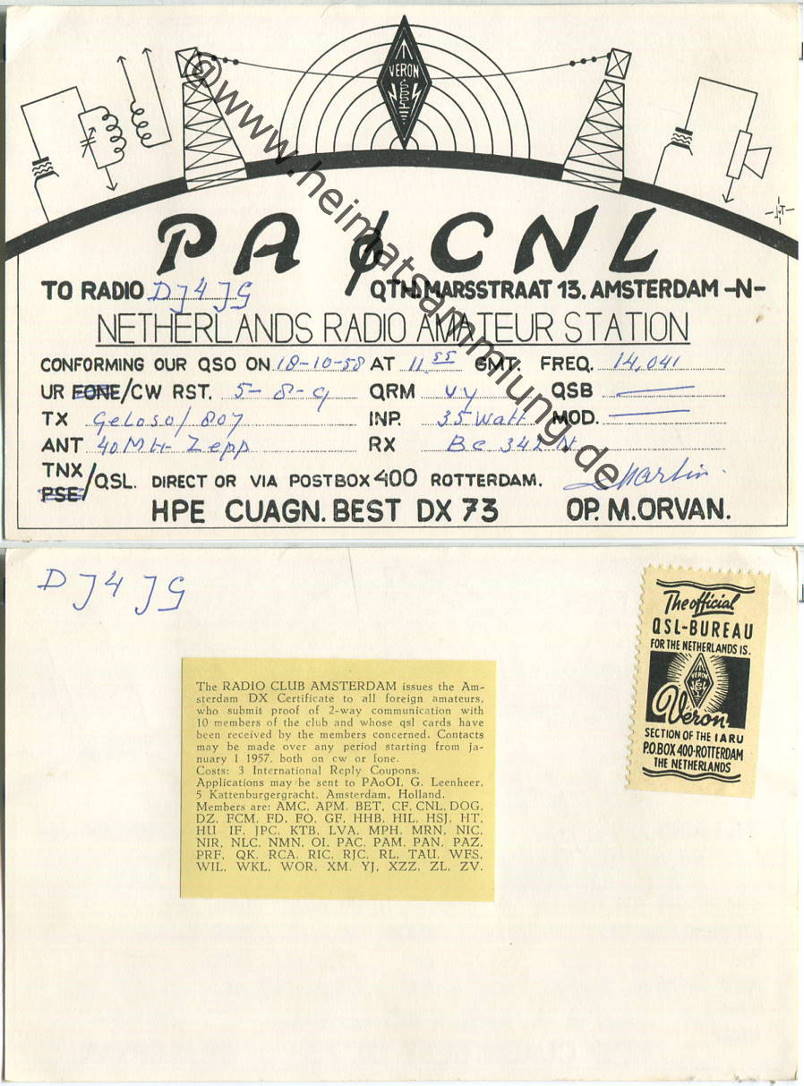 VERON
PAØCNL
TO RADIO DJ4JG QTH. MARSSTRAAT 13. AMSTERDAM -N-
NETHERLANDS RADIO AMATEUR STATION
CONFORMING OUR QSO ON 18-10-58 AT 11.55 GMT. FREQ. 14,041
UR FONE/CW RST. 5-8-9 QRM vy QSB —
TX Geloso/807 INP. 35 Watt MOD. —
ANT 40 MH- Zepp RX Bc 342 N
TNX/PSE/QSL. DIRECT OR VIA POSTBOX 400 ROTTERDAM.
HPE CUAGN. BEST DX 73 OP. M. ORVAN.
@www.heimatsammlung.de
DJ4JG
The official
QSL-BUREAU
FOR THE NETHERLANDS IS.
VERON
Veron.
SECTION OF THE IARU
P.O. BOX 400-ROTTERDAM
THE NETHERLANDS
The RADIO CLUB AMSTERDAM issues the Am-
sterdam DX Certificate to all foreign amateurs,
who submit proof of 2-way communication with
10 members of the club and whose qsl cards have
been received by the members concerned. Contacts
may be made over any period starting from ja-
nuary 1 1957. both on cw or fone.
Costs: 3 International Reply Coupons.
Applications may be sent to PAoOI, G. Leenheer,
5 Kattenburgergracht, Amsterdam, Holland.
Members are: AMC, APM, BET, CF, CNL, DOG,
DZ, FCM, FD, FO, GF, HHB, HIL, HSJ, HT,
HU, IF, JPC, KTB, LVA, MPH, MRN, NIC,
NIR, NLC, NMN, OI, PAC, PAM, PAN, PAZ,
PRF, QK, RCA, RIC, RJC, RL, TAU, WFS,
WIL, WKL, WOR, XM, YJ, XZZ, ZL, ZV.